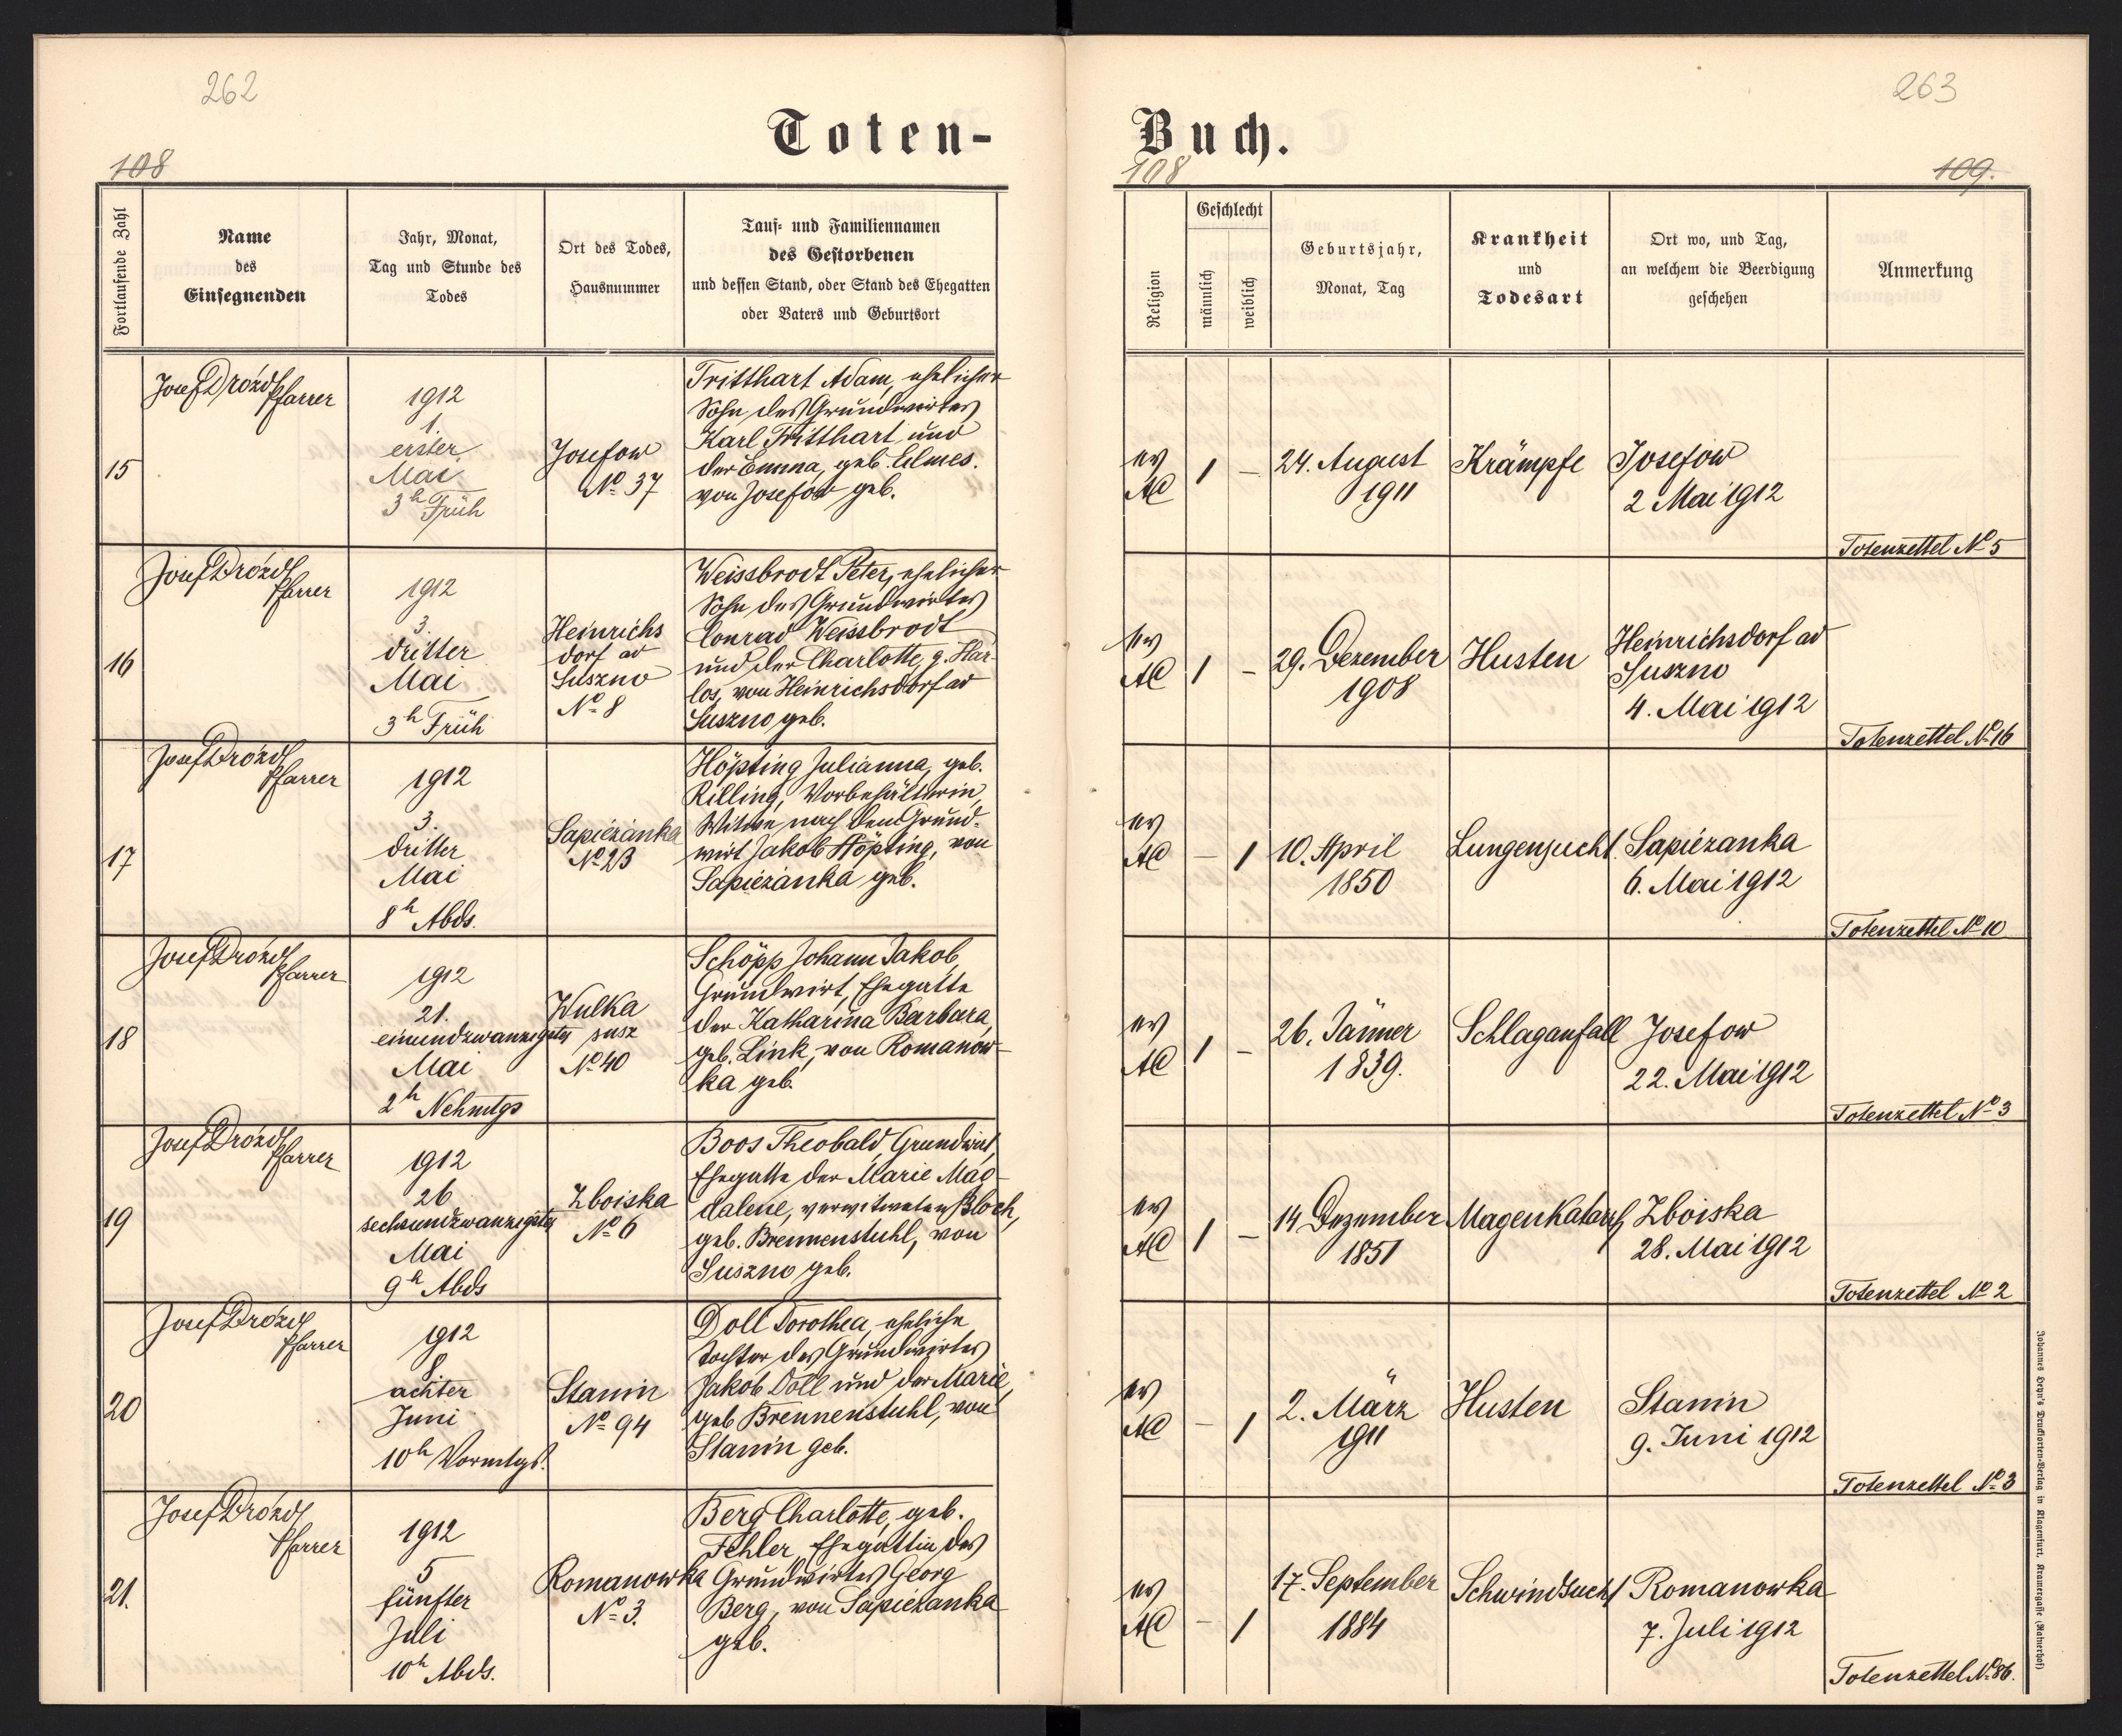 262
263
Toten-
Buch.
108
108
109.
Fortlaufende Zahl
Name
des
Einsegnenden
Jahr, Monat,
Tag und Stunde des
Todes
Ort des Todes,
Hausnummer
Tauf- und Familiennamen
des Gestorbenen
und dessen Stand, oder Stand des Ehegatten
oder Vaters und Geburtsort
Religion
Geschlecht
männlich
weiblich
Geburtsjahr,
Monat, Tag
Krankheit
und
Todesart
Ort wo, und Tag,
an welchem die Beerdigung
geschehen
Anmerkung
15
Josef Drozd
Pfarrer
1912
1.
erster
Mai
3h Früh
Josefow
No 37
Tritthart Adam, ehelicher
Sohn des Grundwirtes
Karl Tritthart und
der Emma, geb. Elmes.
von Josefow geb.
ev
AC
1
–
24. August
1911
Krämpfe
Josefow
2 Mai 1912
Totenzettel No 5
16
Josef Drozd
Pfarrer
1912
3.
dritter
Mai
3h Früh
Heinrichs
dorf ad
Suszno
No 8
Weissbrodt Peter, ehelicher
Sohn des Grundwirtes
Conrad Weissbrodt
und der Charlotte, g. Har-
los, von Heinrichsdorf ad
Suszno geb.
ev
AC
1
–
29. Dezember
1908
Husten
Heinrichsdorf ad
Suszno
4. Mai 1912
Totenzettel No 16
17
Josef Drozd
Pfarrer
1912
3.
dritter
Mai
8h Abds.
Sapieżanka
No 23
Höpting Julianna, geb.
Rilling, Vorbehälterin,
Witwe nach dem Grund-
wirt Jakob Höpting, von
Sapieżanka geb.
ev
AC
–
1
10. April
1850
Lungensucht.
Sapieżanka
6. Mai 1912
Totenzettel No 10
18
Josef Drozd
Pfarrer
1912
21.
einundzwanzigster
Mai
2h Nchmtgs
Wulka
susz
No 40
Schöpp Johann Jakob,
Grundwirt, Ehegatte
der Katharina Barbara,
geb. Link, von Romanow-
ka geb.
ev
AC
1
–
26. Jänner
1839.
Schlaganfall
Josefow
22. Mai 1912
Totenzettel No 3
19
Josef Drozd
Pfarrer
1912
26
sechsundzwanzigster
Mai
9h Abds
Zboiska
No 6
Boos Theobald, Grundwirt,
Ehegatte der Marie Mag-
dalene, verwitweten Bloch,
geb. Brennenstuhl, von
Suszno geb.
ev
AC
1
–
14 Dezember
1851
Magenkatarrh
Zboiska
28. Mai 1912
Totenzettel No 2
20
Josef Drozd
Pfarrer
1912
8
achter
Juni
10h Vormtgs.
Stanin
No 94
Doll Dorothea, eheliche
Tochter des Grundwirtes
Jakob Doll und der Marie,
geb Brennenstuhl, von
Stanin geb.
ev
AC
–
1
2. März
1911
Husten
Stanin
9. Juni 1912
Totenzettel No 3
21.
Josef Drozd
Pfarrer
1912
5
fünfter
Juli
10h Abds.
Romanowka
No 3.
Berg Charlotte, geb.
Fehler, Ehegattin des
Grundwirtes Georg
Berg, von Sapieżanka
geb.
ev
AC
–
1
17. September
1884
Schwindsucht
Romanowka
7. Juli 1912
Totenzettel No 86.
Johannes Heyn's Drucksorten-Verlag in Klagenfurt, Kramergasse (Rainerhof)